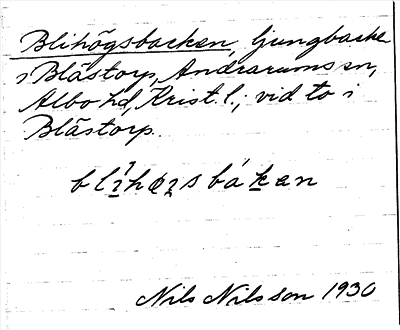 Blihögsbacken, ljungbacke
i Blästorp, Andrarums sn,
Albo hd, Krist. l.; vid to i
Blästorp.
Nils Nilsson 1930